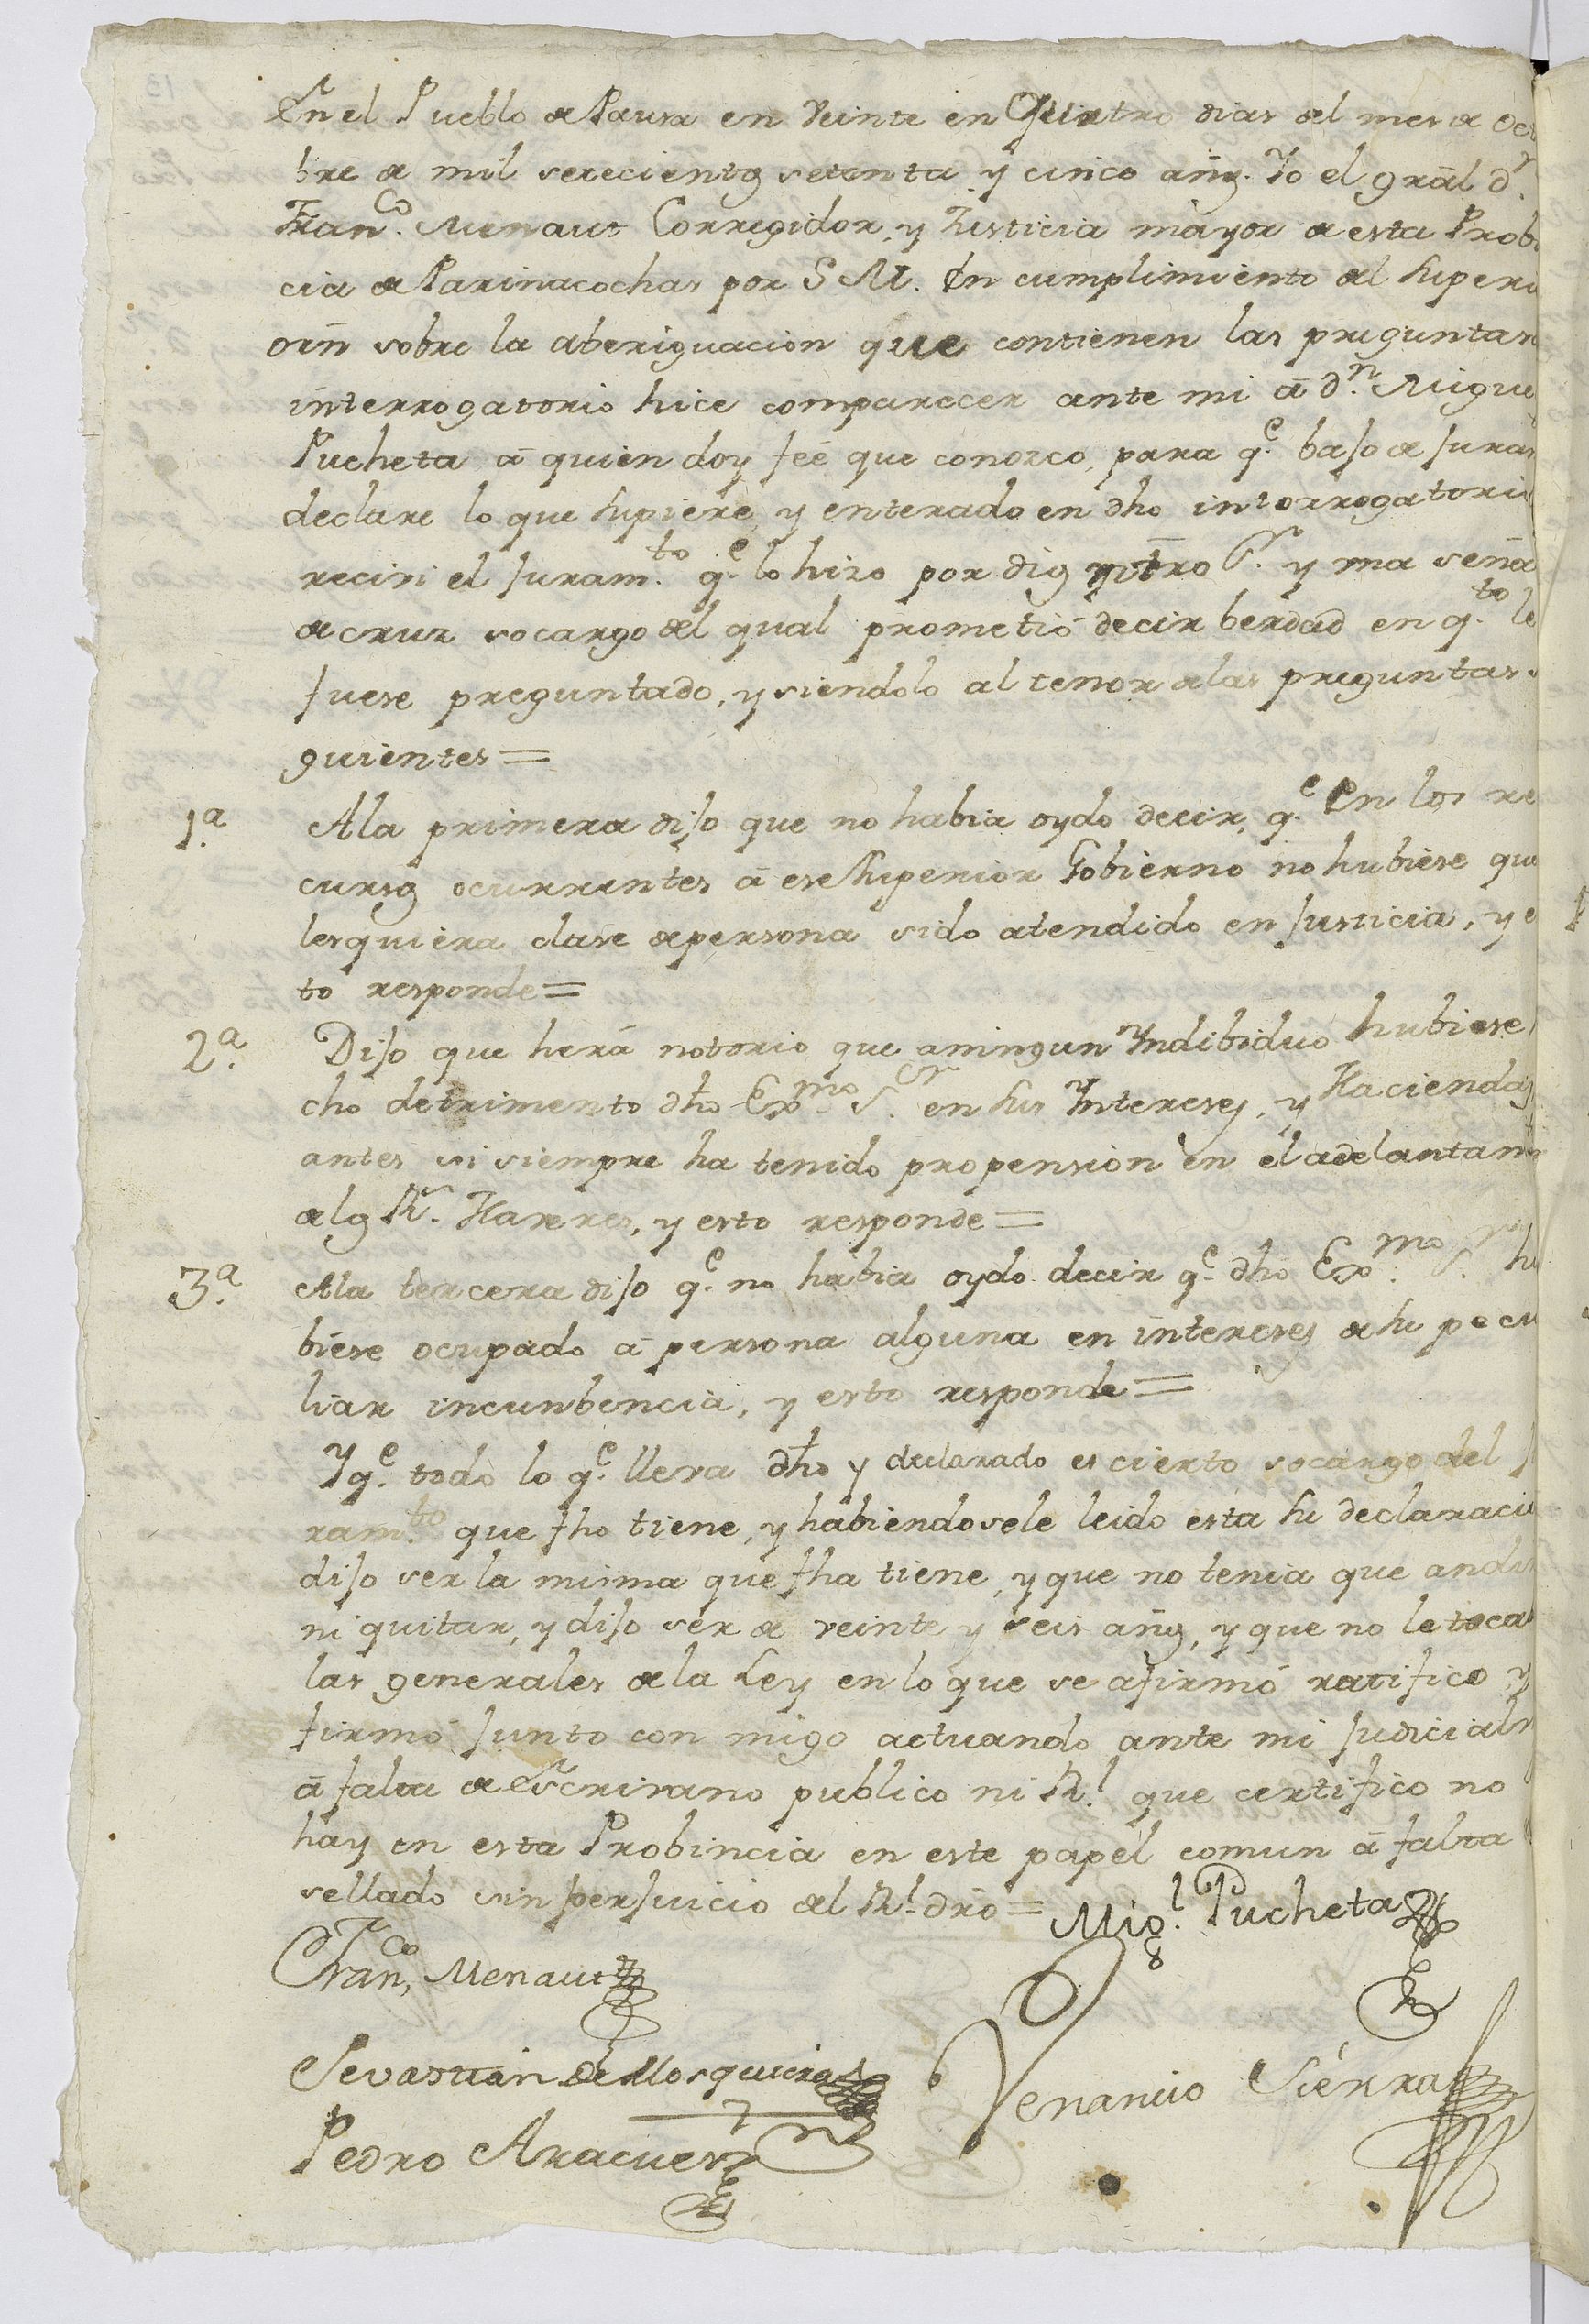 En el Pueblo de Pausa en veinte en Quatro dias del mes de Oct
bre de mil setecientos setenta y cinco años. Yo el grãl dn.
Franco. Menaut Corregidor, y Justicia mayor de esta Probi
cia de Parinacochas por S M. En cumplimiento del superi
orñ sobre la aberiguacion que contienen las preguntas
interrogatorio hice comparecer ante mi â dn. Migue
Pucheta â quien doy feé que conosco, para qe. bajo de Jura
declare lo que supiere, y enterado en dho interrogatorio
recivi el Juramto. qe. lo hizo por dios nrõ Sr. y una señal
de cruz so cargo del qual prometió decir berdad en qto. le
fuese preguntado, y siendolo al tenor de las preguntas
guientes=
1a. A la primera dijo que no habia oydo decir, qe. en los re
cursos ocurrentes â ese Superior Gobierno no hubiese qua
lesquiera clase de persona sido atendido en Justicia, y e
to responde=
2a. Dijo que herá notorio que aningun Yndibiduo hubiese
cho detrimento dho Exmo. Sor. en sus Yntereses, y Haciendas
antes si siempre ha tenido propension en el adelantam
de los Rs. Haxeres, y esto responde=
3a. A la tercera dijo qe. no habia oydo decir qe. dho Exmo. Sor. hu
biese ocupado â persona alguna en intereses de su pecu
liar incunbencia, y esto responde=
Y qe. todo lo qe. lleva dho y declarado es cierto so cargo del J
ramto. que fho tiene, y habiendosele leido esta su declaracio
dijo ser la misma que fha tiene, y que no tenia que añdi
ni quitar, y dijo ser de veinte y seis años, y que no le toca
las generales de la Ley en lo que se afirmó ratificó y
firmó Junto con migo actuando ante mi Judicialm
â falta de Escrivano publico ni Rl. que certifico no
hay en esta Probincia en este papel comun â falta
sellado sin perjuicio del Rl. drõ=
Migl. Pucheta
Franco. Menaut
Sevastian de Mosqueira
Venancio Siérra
Pedro Aracues